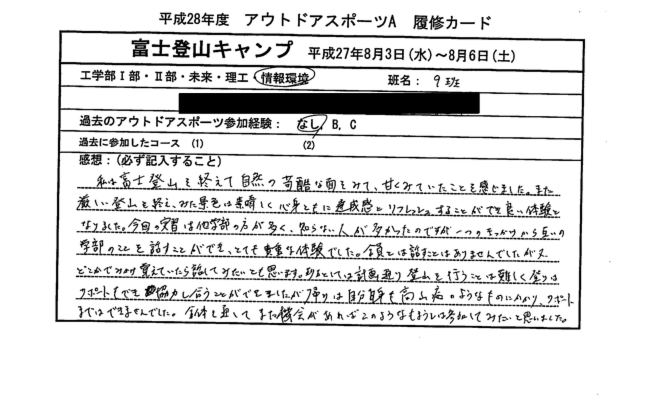 平成28年度 アウトドアスポーツA 履修カード
富士登山キャンプ 平成27年8月3日(水)~8月6日(土)
工学部Ⅰ部・Ⅱ部・未来・理工・情報環境 班名: 9班
過去のアウトドアスポーツ参加経験: なし B, C
過去に参加したコース (1) (2)
感想:(必ず記入すること)
私は富士登山を終えて自然の苛酷な面をみて、甘くみていたことを感じました。また
厳しい登山を終え、みた景色は素晴しく心身ともに達成感とリフレッシュすることができ良い体験と
なりました。今回の実習は他学部の方が多く、知らない人が多かったのですが一つのきっかけから互いの
学部のことを話すことができ、とても貴重な体験でした。全員とは話すことはありませんでしたが又
どこかで 覚えていたら話してみたいとも思います。 としては計画通り登山を行うことは難しく登りは
サポートもでき 協力し合うことができましたが帰りは自分自身も高山病のようなものにかかり、サポート
まではできませんでした。全体を通してまた機会があればこのような は参加してみたいと思いました。